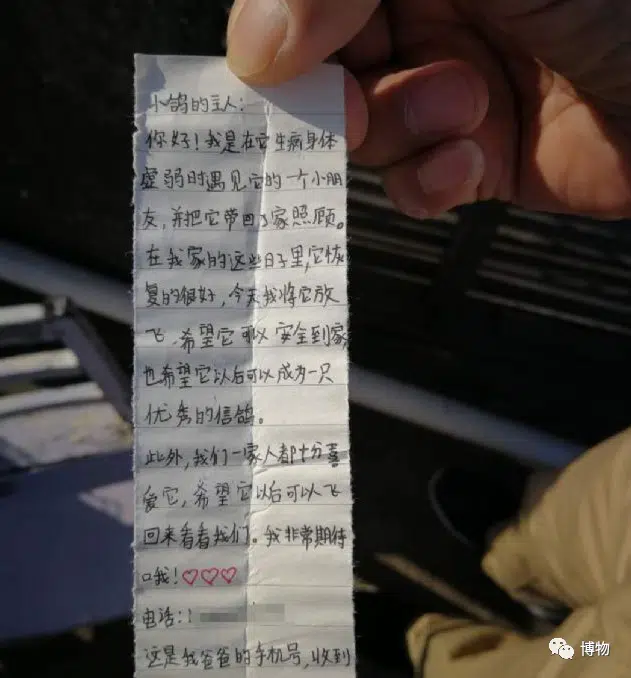 小鸽的主人:
你好!我是在它生病身体
虚弱时遇见它的一个小朋
友,并把它带回了家照顾。
在我家的这些日子里,它恢
复的很好,今天我将它放
飞,希望它可以安全到家,
也希望它以后可以成为一只
优秀的信鸽。
此外,我们一家人都十分喜
爱它,希望它以后可以飞
回来看看我们。我非常期待
哦!♡♡♡
电话:1
这是我爸爸的手机号,收到
博物